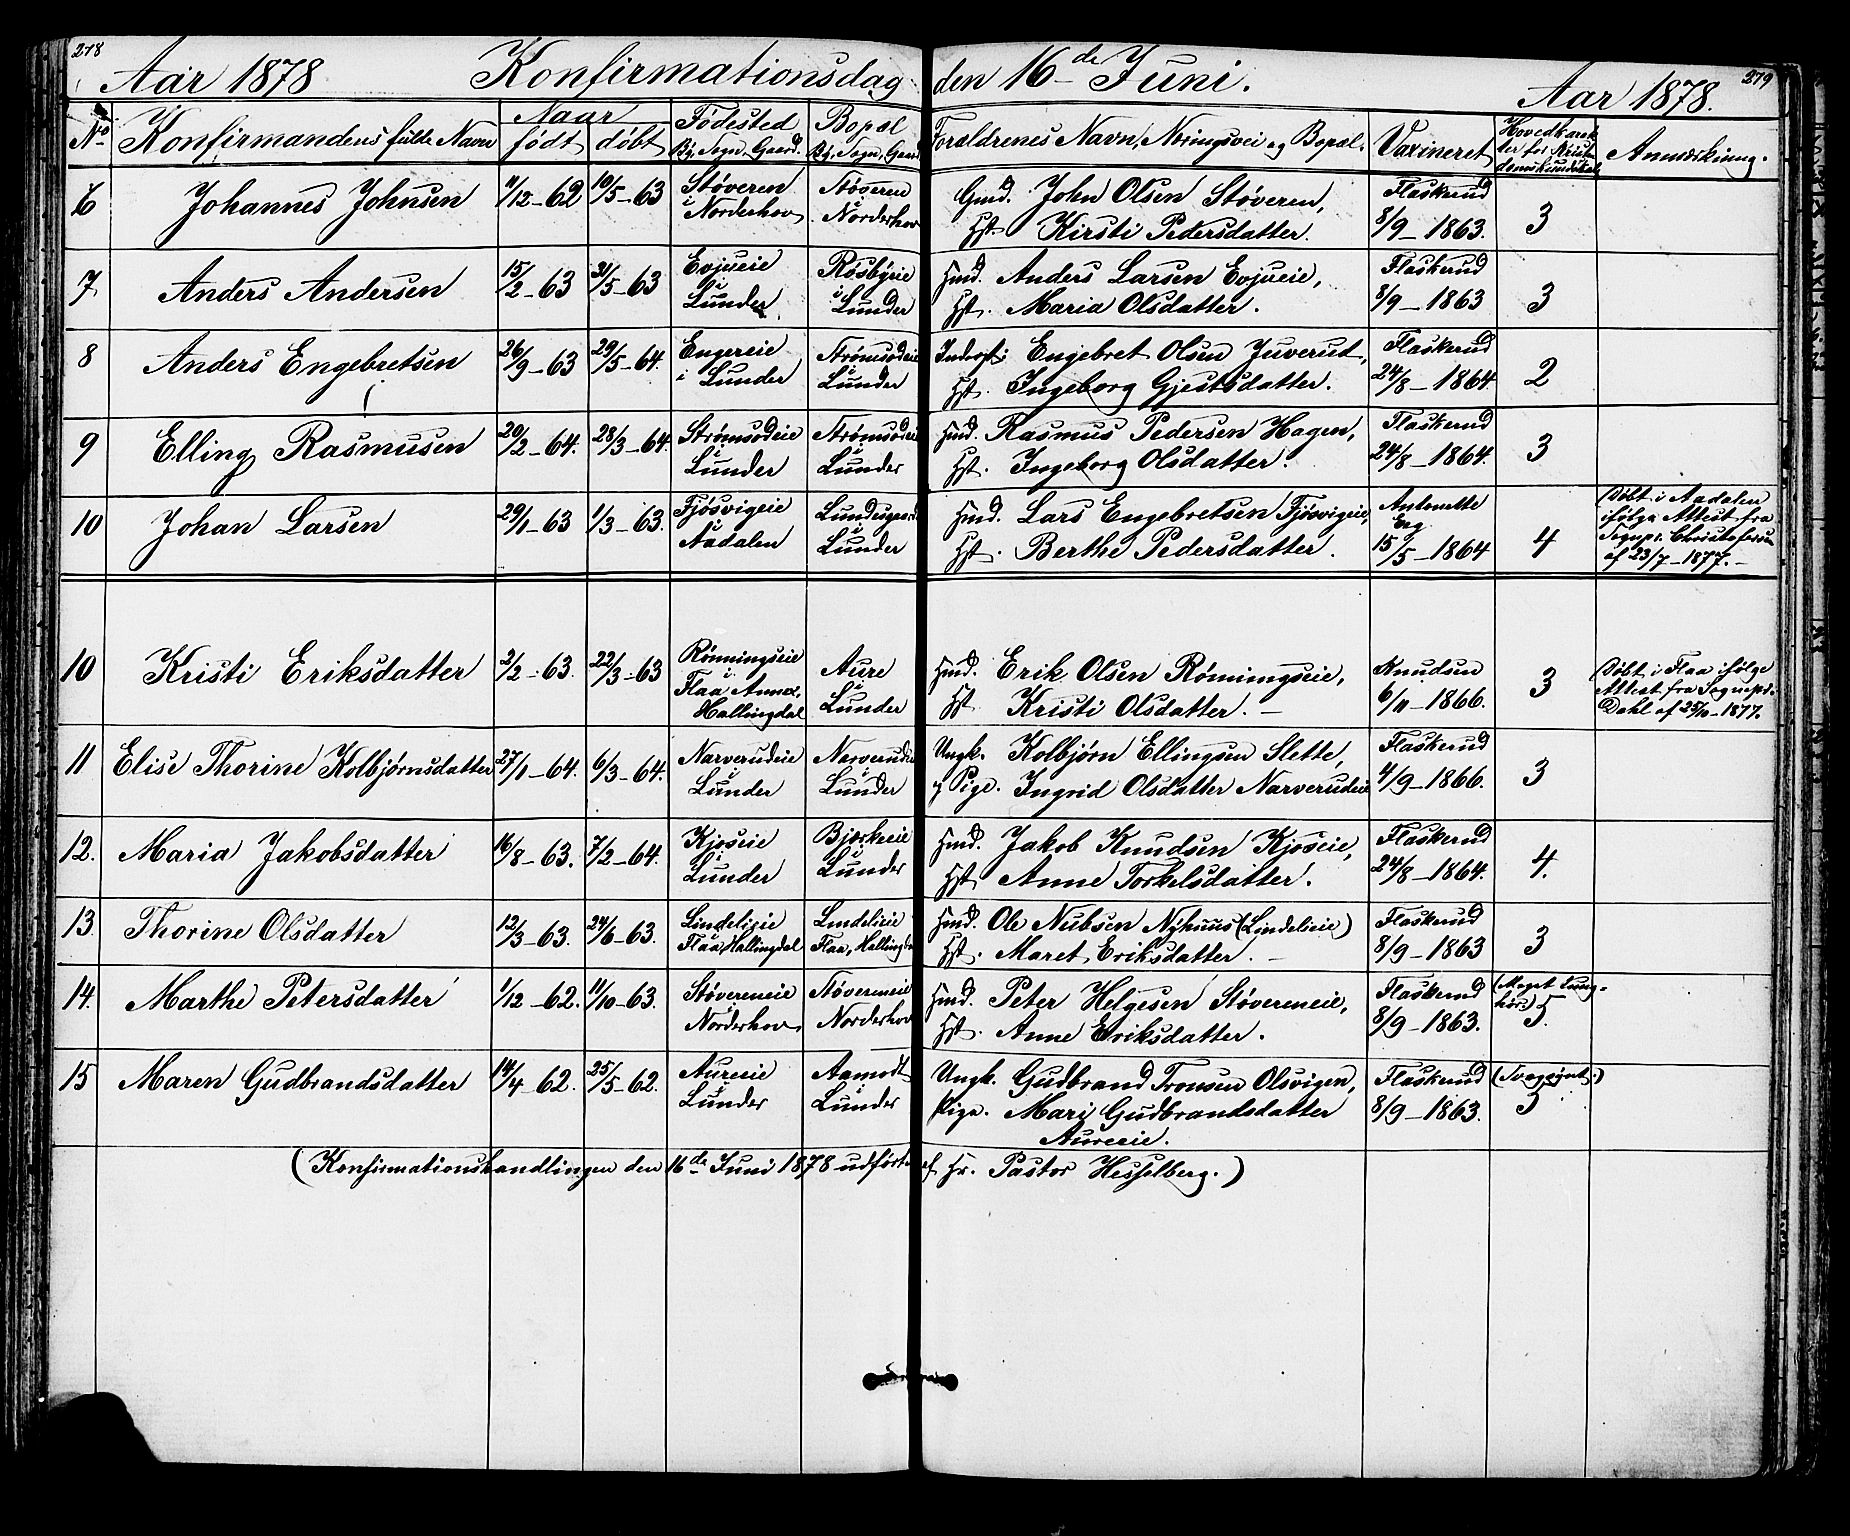 278
Aar 1878 Konfirmationsdag den 16de Juni. Aar 1878. 279
No Konfirmandens fulde Navn Naar født døbt Fødested By, Sogn, Gaard. Bopæl By, Sogn, Gaard Forældrenes Navn, Næringsvei og Bopæl. Vaxineret Hovedkarakter for Kristendomskundskab Anmærkning.
6 Johannes Johnsen 11/12-62 10/5-63 Støveren i Norderhov Støveren i Norderhov Gmd. John Olsen Støveren, Flaskerud 3
Hst. Kirsti Pedersdatter. 8/9-1863.
7 Anders Andersen 15/2-63 31/5-63 Evjueie i Lunder Røsbyeie i Lunder Hmd. Anders Larsen Evjueie, Flaskerud 3
Hst. Maria Olsdatter. 8/9-1863
8 Anders Engebretsen 26/9-63 29/5-64. Engereie i Lunder Strømsødeie i Lunder Inderst: Engebret Olsen Juverud, Flaskerud 2
Hst. Ingeborg Gjestsdatter. 24/8-1864
9 Elling Rasmusen 20/2-64. 28/3-64. Strømsødeie i Lunder Strømsødeie i Lunder Hmd. Rasmus Pedersen Hagen, Flaskerud 3
Hst. Ingeborg Olsdatter. 24/8-1864.
10 Johan Larsen 29/1-63 1/3-63. Fjøsvigeie i Aadalen Lundesgaard i Lunder Hmd. Lars Engebretsen Fjøsvigeie, Antonette Eng 4 Døbt i Aadalen
Hst. Berthe Pedersdatter. 15/5-1864 ifølge Attest fra
Sognepr. Christofersen
af 23/7-1877.-
10 Kristi Eriksdatter 2/2-63. 22/3-63 Rønningseie i Flaa Annex, Hallingdal Aure i Lunder Hmd. Erik Olsen Rønningseie, Knudsen 3 Døbt i Flaa ifølge
Hst Kristi Olsdatter.- 6/11-1866. Attest fra Sognepr.
Dahl af 25/10-1877.
11 Elise Thorine Kolbjørnsdatter 27/1-64. 6/3-64. Narverudeie i Lunder Narverudeie i Lunder Ungk. Kolbjørn Ellingsen Slette, Flaskerud 3
og Pige. Ingrid Olsdatter Narverudeie 4/9-1866.
12. Maria Jakobsdatter 16/8-63. 7/2-64. Kjoseie i Lunder Bjerkeeie i Lunder Hmd. Jakob Knudsen Kjoseie, Flaskerud 4.
Hst Anne Torkelsdatter. 24/8-1864.
13. Thorine Olsdatter 12/3-63. 24/6-63. Lindelieie i Flaa, Hallingdal Lindelieie Flaa, Hallingdal Hmd. Ole Nubsen Nyhuus (Lindelieie) Flaskerud 3
Hst. Maret Eriksdatter.- 8/9-1863
14. Marthe Petersdatter 1/12-62. 11/10-63. Støvereneie Norderhov Støvereneie Norderhov Hmd. Peter Helgesen Støvereneie, Flaskerud (Meget tung-
Hst. Anne Eriksdatter. 8/9-1863. hør.) 5.
15 Maren Gudbrandsdatter 14/4-62. 25/5-62. Aureeie i Lunder Aamodt i Lunder Ungk. Gudbrand Tronsen Olsvigen, Flaskerud (Svagsynt.)
Pige. Mari Gudbrandsdatter 8/9-1863. 3
Aureeie.
(Konfirmationshandlingen den 16de Juni 1878 udført af Hr. Pastor Hesselberg.)